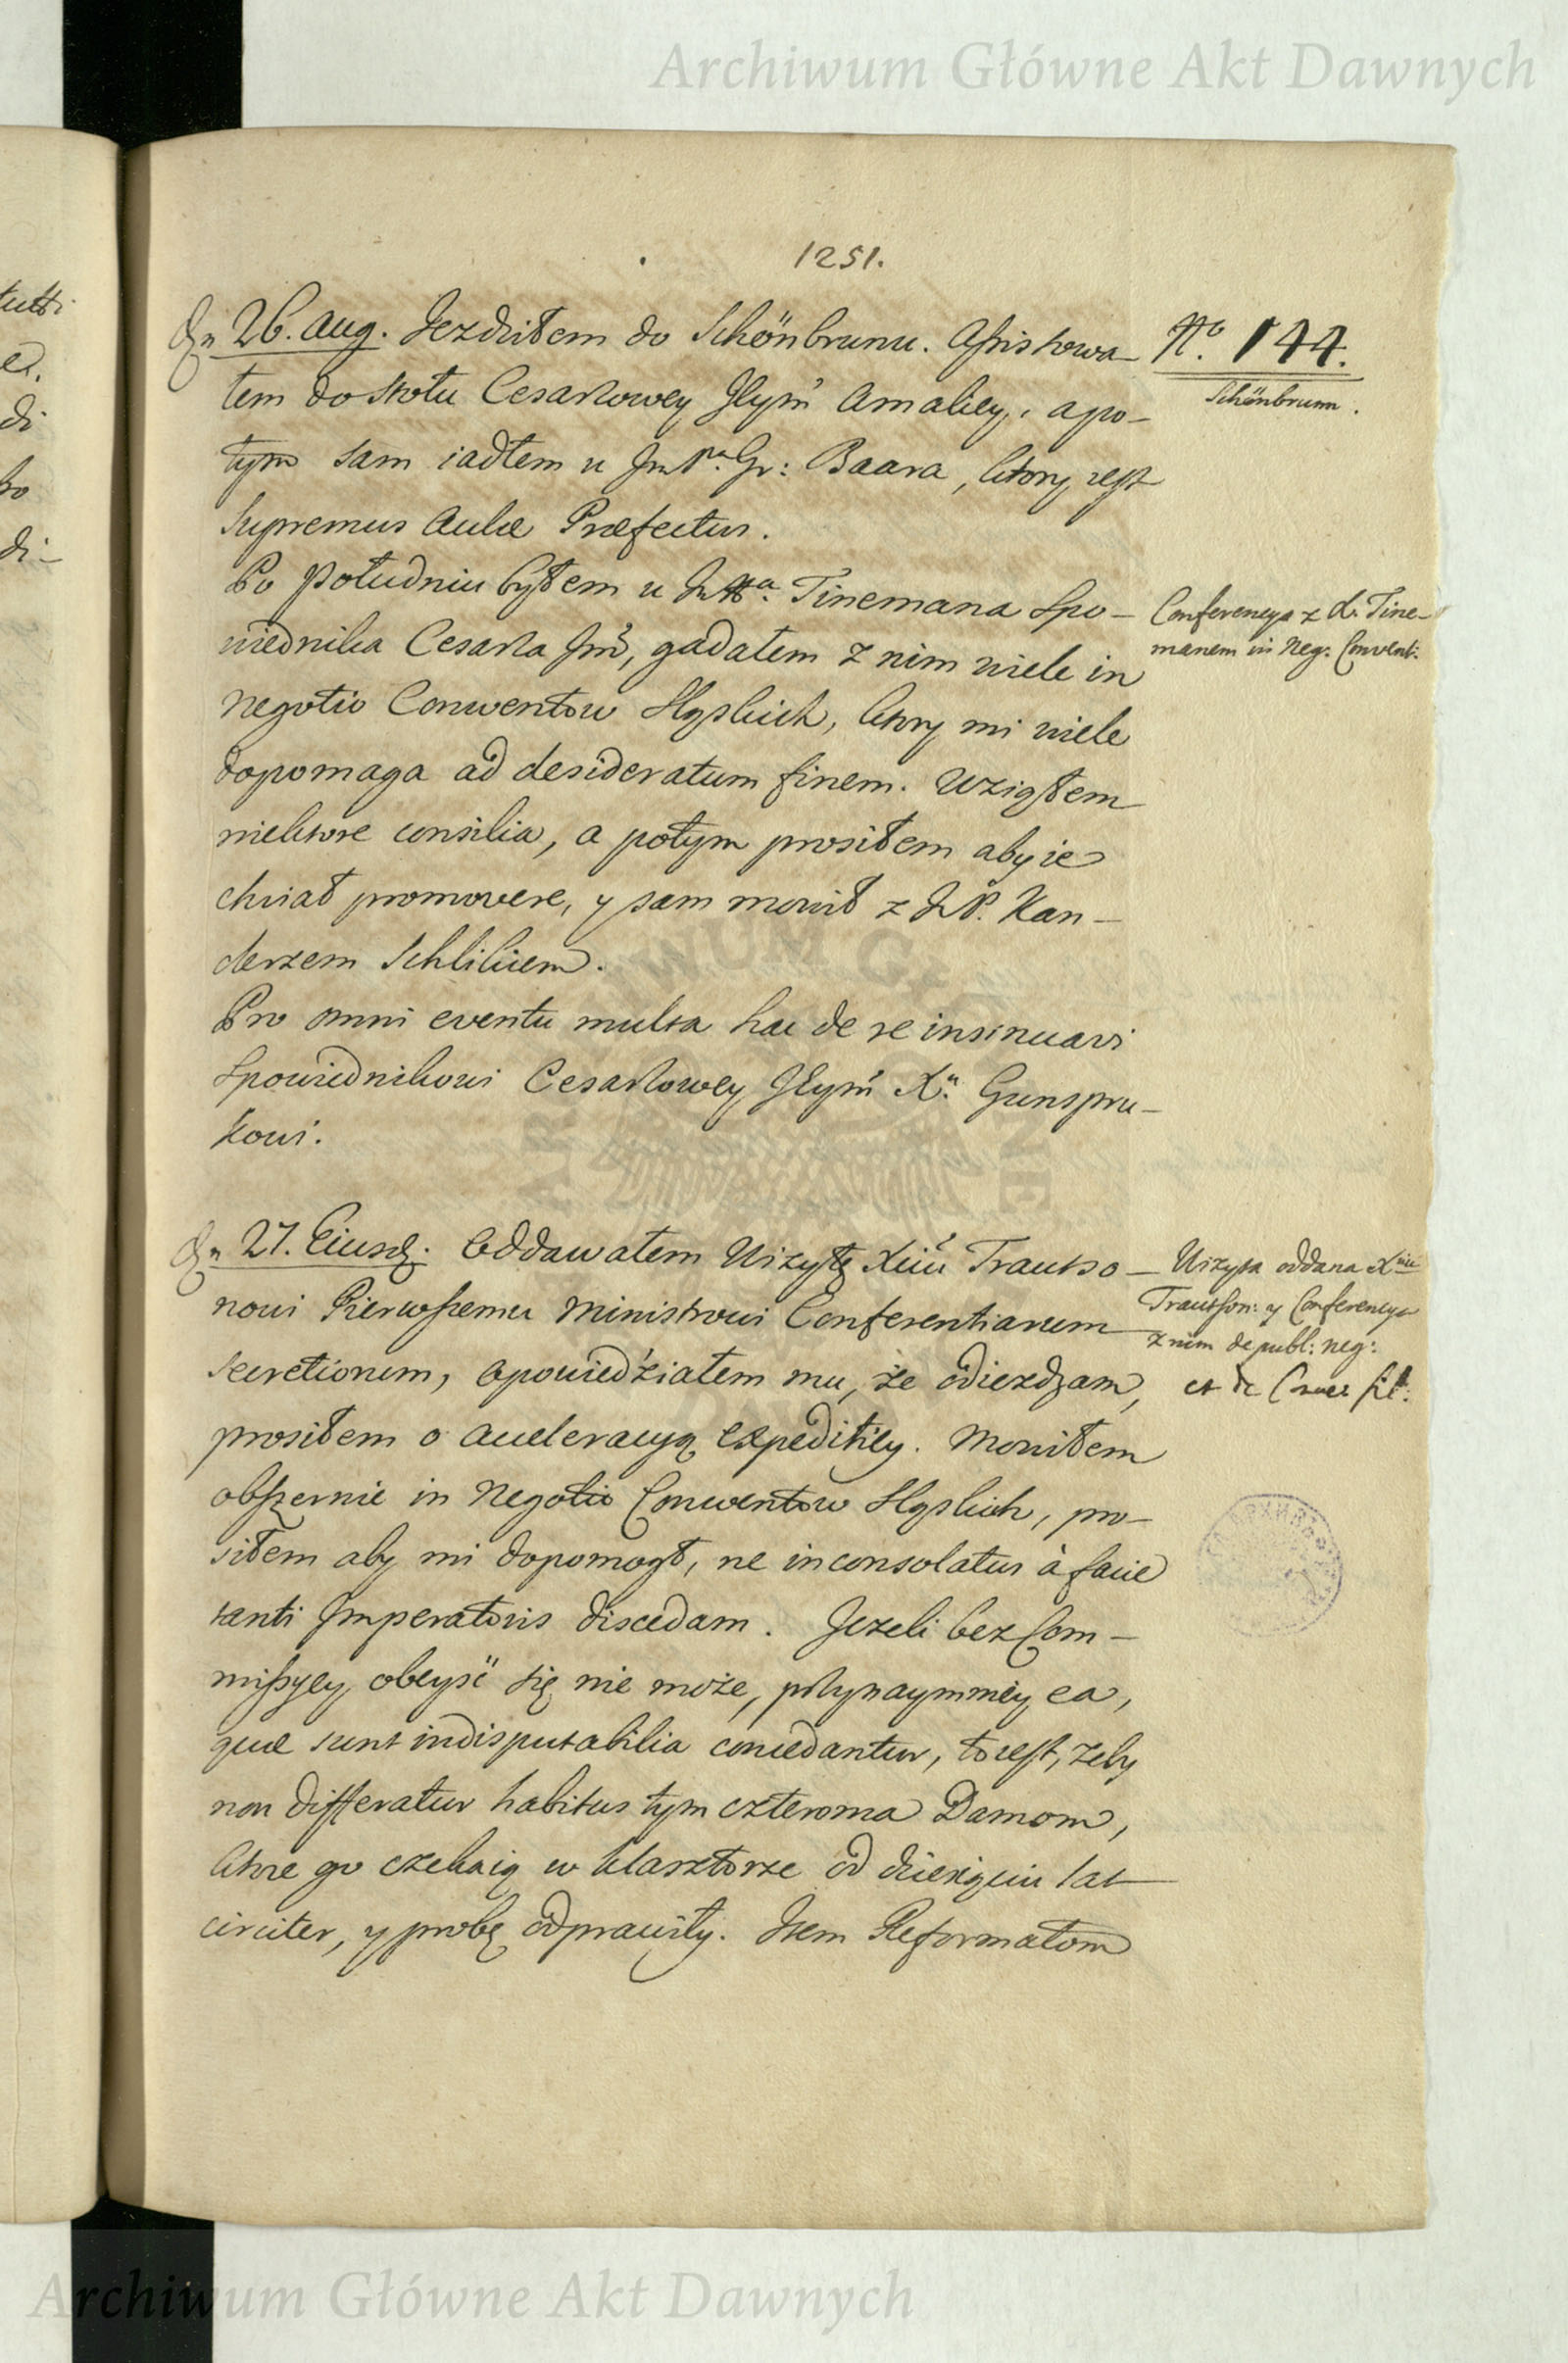 Archiwum Główne Akt Dawnych
1251.
Dn 26. Aug. Jezdziłem do Schönbrunu. Assistowa-
łem do stołu Cesarzowey JEymć Amaliey, a po-
tym sam iadłem u JmPa. Gr: Baara, ktory jest
Supremus Aulæ Præfectus.
Po południu byłem u Tinemana Spo-
wiednika Cesarza Jmć, gadałem z nim wiele in
negotio Conwentow Sląskich, ktory mi wiele
dopomaga ad desideratum finem. Wziąłem
niektore consilia, a potym prosiłem aby ie
chciał promovere, y sam mowił z JP. Kan-
clerzem Schlikiem.
Pro omni eventu multa hac de re insinuavi
Spowiednikowi Cesarzowey JEymć Xu. Gunspru-
kowi.
Dn 27. Eiusd. Oddawałem Wizytę Xciu Trautso-
nowi Pierwszemu Ministrowi Conferentiarum
secretiorum, opowiedźiałem mu, że odiezdzam,
prosiłem o acceleracyą expeditiey. Mowiłem
obszernie in Negotio Conwentow Sląskich, pro-
siłem aby mi dopomogł, ne inconsolatus à facie
tanti Imperatoris discedam. Jezeli bez Com-
missyey obeysć się nie może, przynaymniey ea,
quæ sunt indisputabilia concedantur, to iest, zeby
non differatur habitus tym czteroma Damom,
ktore go czekaią w klasztorze od dziesiąciu lat
circiter, y probę odprawiły. Item Reformatom
No. 144.
Schönbrunn.
Conferencya z X. Tine-
manem in Neg: Convent:
Wizyta oddana Xciu
Trautson: y Conferencya
z nim de publ: neg:
et de
Archiwum Główne Akt Dawnych